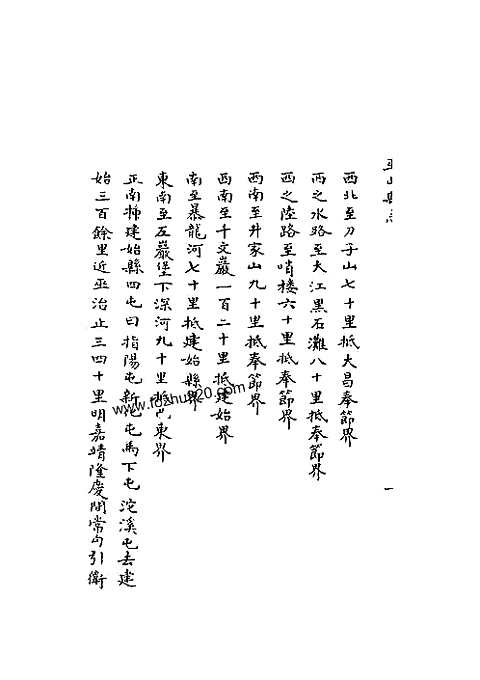 巫山縣志
一
西北至刀子山七十里抵大昌奉節界
西之水路至大江黒石灘八十里抵奉節界
西之陸路至哨樓六十里抵奉節界
西南至升家山九十里抵奉節界
西南至千文巖一百二十里抵建始界
南至暴龍河七十里抵建始縣界
東南至瓦巖堡下深河九十里抵巴東界
正南插建始縣四屯曰指陽屯新屯馬下屯沱溪屯去建
始三百餘里近巫治止三四十里明嘉靖隆慶間常勾引衛
www.foushu20.com